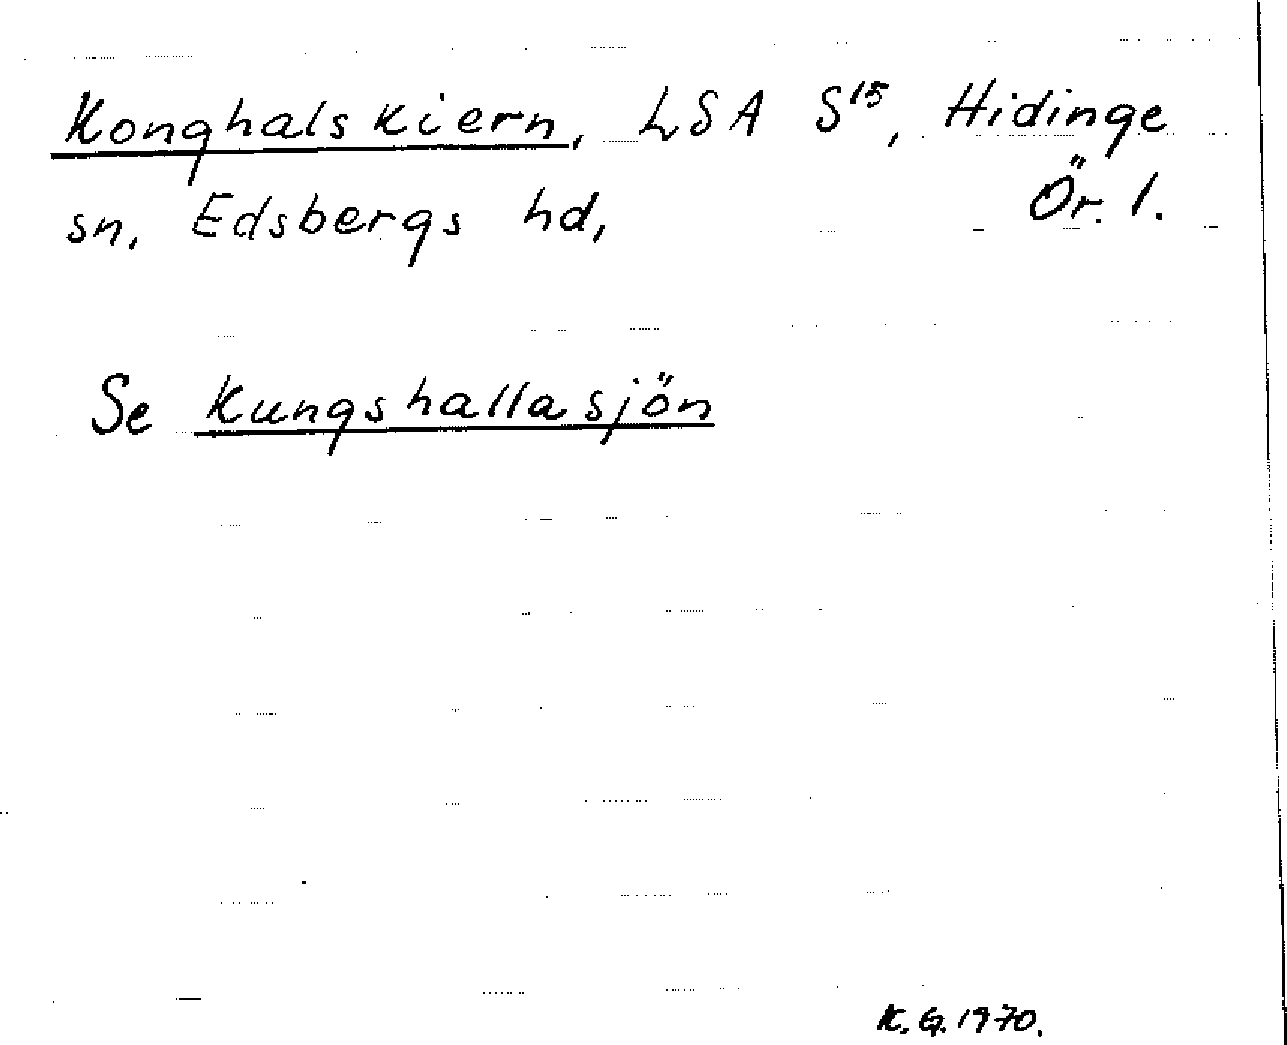 Konghalskiern, LSA S15, Hidinge
sn, Edsbergs hd, Ör. l.
Se Kungshallasjön
K.G. 1970.